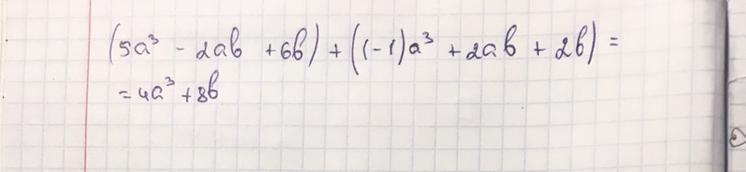 (5a³ - 2ab + 6b) + ((-1)a³ + 2ab + 2b) =
= 4a³ + 8b